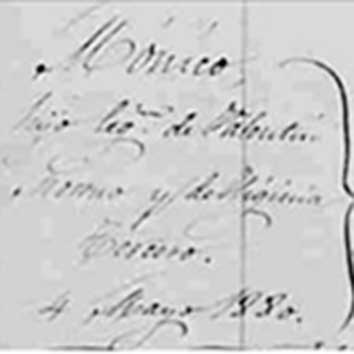 Mónico,
hijo leg.mo de Valentin
Moreno y de Higinia
Tercero.
4 Mayo 1880.